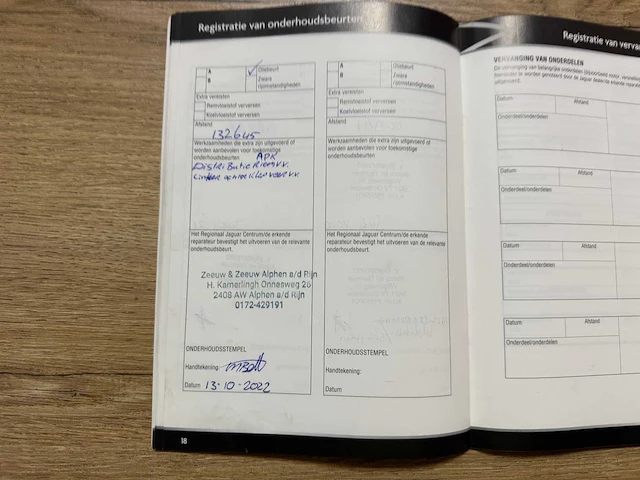 Registratie van onderhoudsbeurten
A
B
Oliebeurt
Zware
rijomstandigheden
Extra vereisten
Remvloeistof verversen
Koelvloeistof verversen
Afstand
132645
Werkzaamheden die extra zijn uitgevoerd of
worden aanbevolen voor toekomstige
onderhoudsbeurten APK
Distributie Riem v.v.
Het Regionaal Jaguar Centrum/de erkende
reparateur bevestigt het uitvoeren van de relevante
onderhoudsbeurt.
Zeeuw & Zeeuw Alphen a/d Rijn
H. Kamerlingh Onnesweg 26
2408 AW Alphen a/d Rijn
0172-429191
ONDERHOUDSSTEMPEL
Handtekening:
Datum 13-10-2022
18
A
B
Oliebeurt
Zware
rijomstandigheden
Extra vereisten
Remvloeistof verversen
Koelvloeistof verversen
Afstand
Werkzaamheden die extra zijn uitgevoerd of
worden aanbevolen voor toekomstige
onderhoudsbeurten
Het Regionaal Jaguar Centrum/de erkende
reparateur bevestigt het uitvoeren van de relevante
onderhoudsbeurt.
ONDERHOUDSSTEMPEL
Handtekening:
Datum
Registratie van verva
VERVANGING VAN ONDERDELEN
Datum
Afstand
Onderdeel/onderdelen
Datum
Afstand
Onderdeel/onderdelen
Datum
Afstand
Onderdeel/onderdelen
Datum
Afstand
Onderdeel/onderdelen